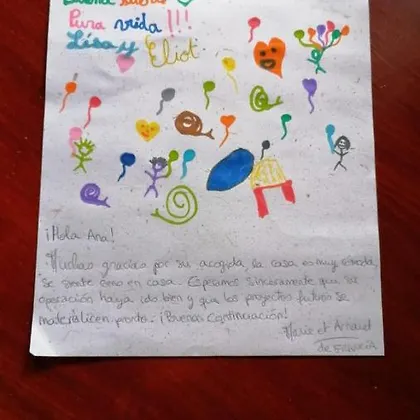 Buena suerte
Pura vida !!!
Lisa y Eliot
¡Hola Ana!
Muchas gracias por su acogida, la casa es muy cómoda,
se siente como en casa. Esperamos sinceramente que su
operación haya ido bien y que los proyectos futuros se
materialicen pronto. ¡Buena continuación!
Marie et Arnaud
de FRANCIA